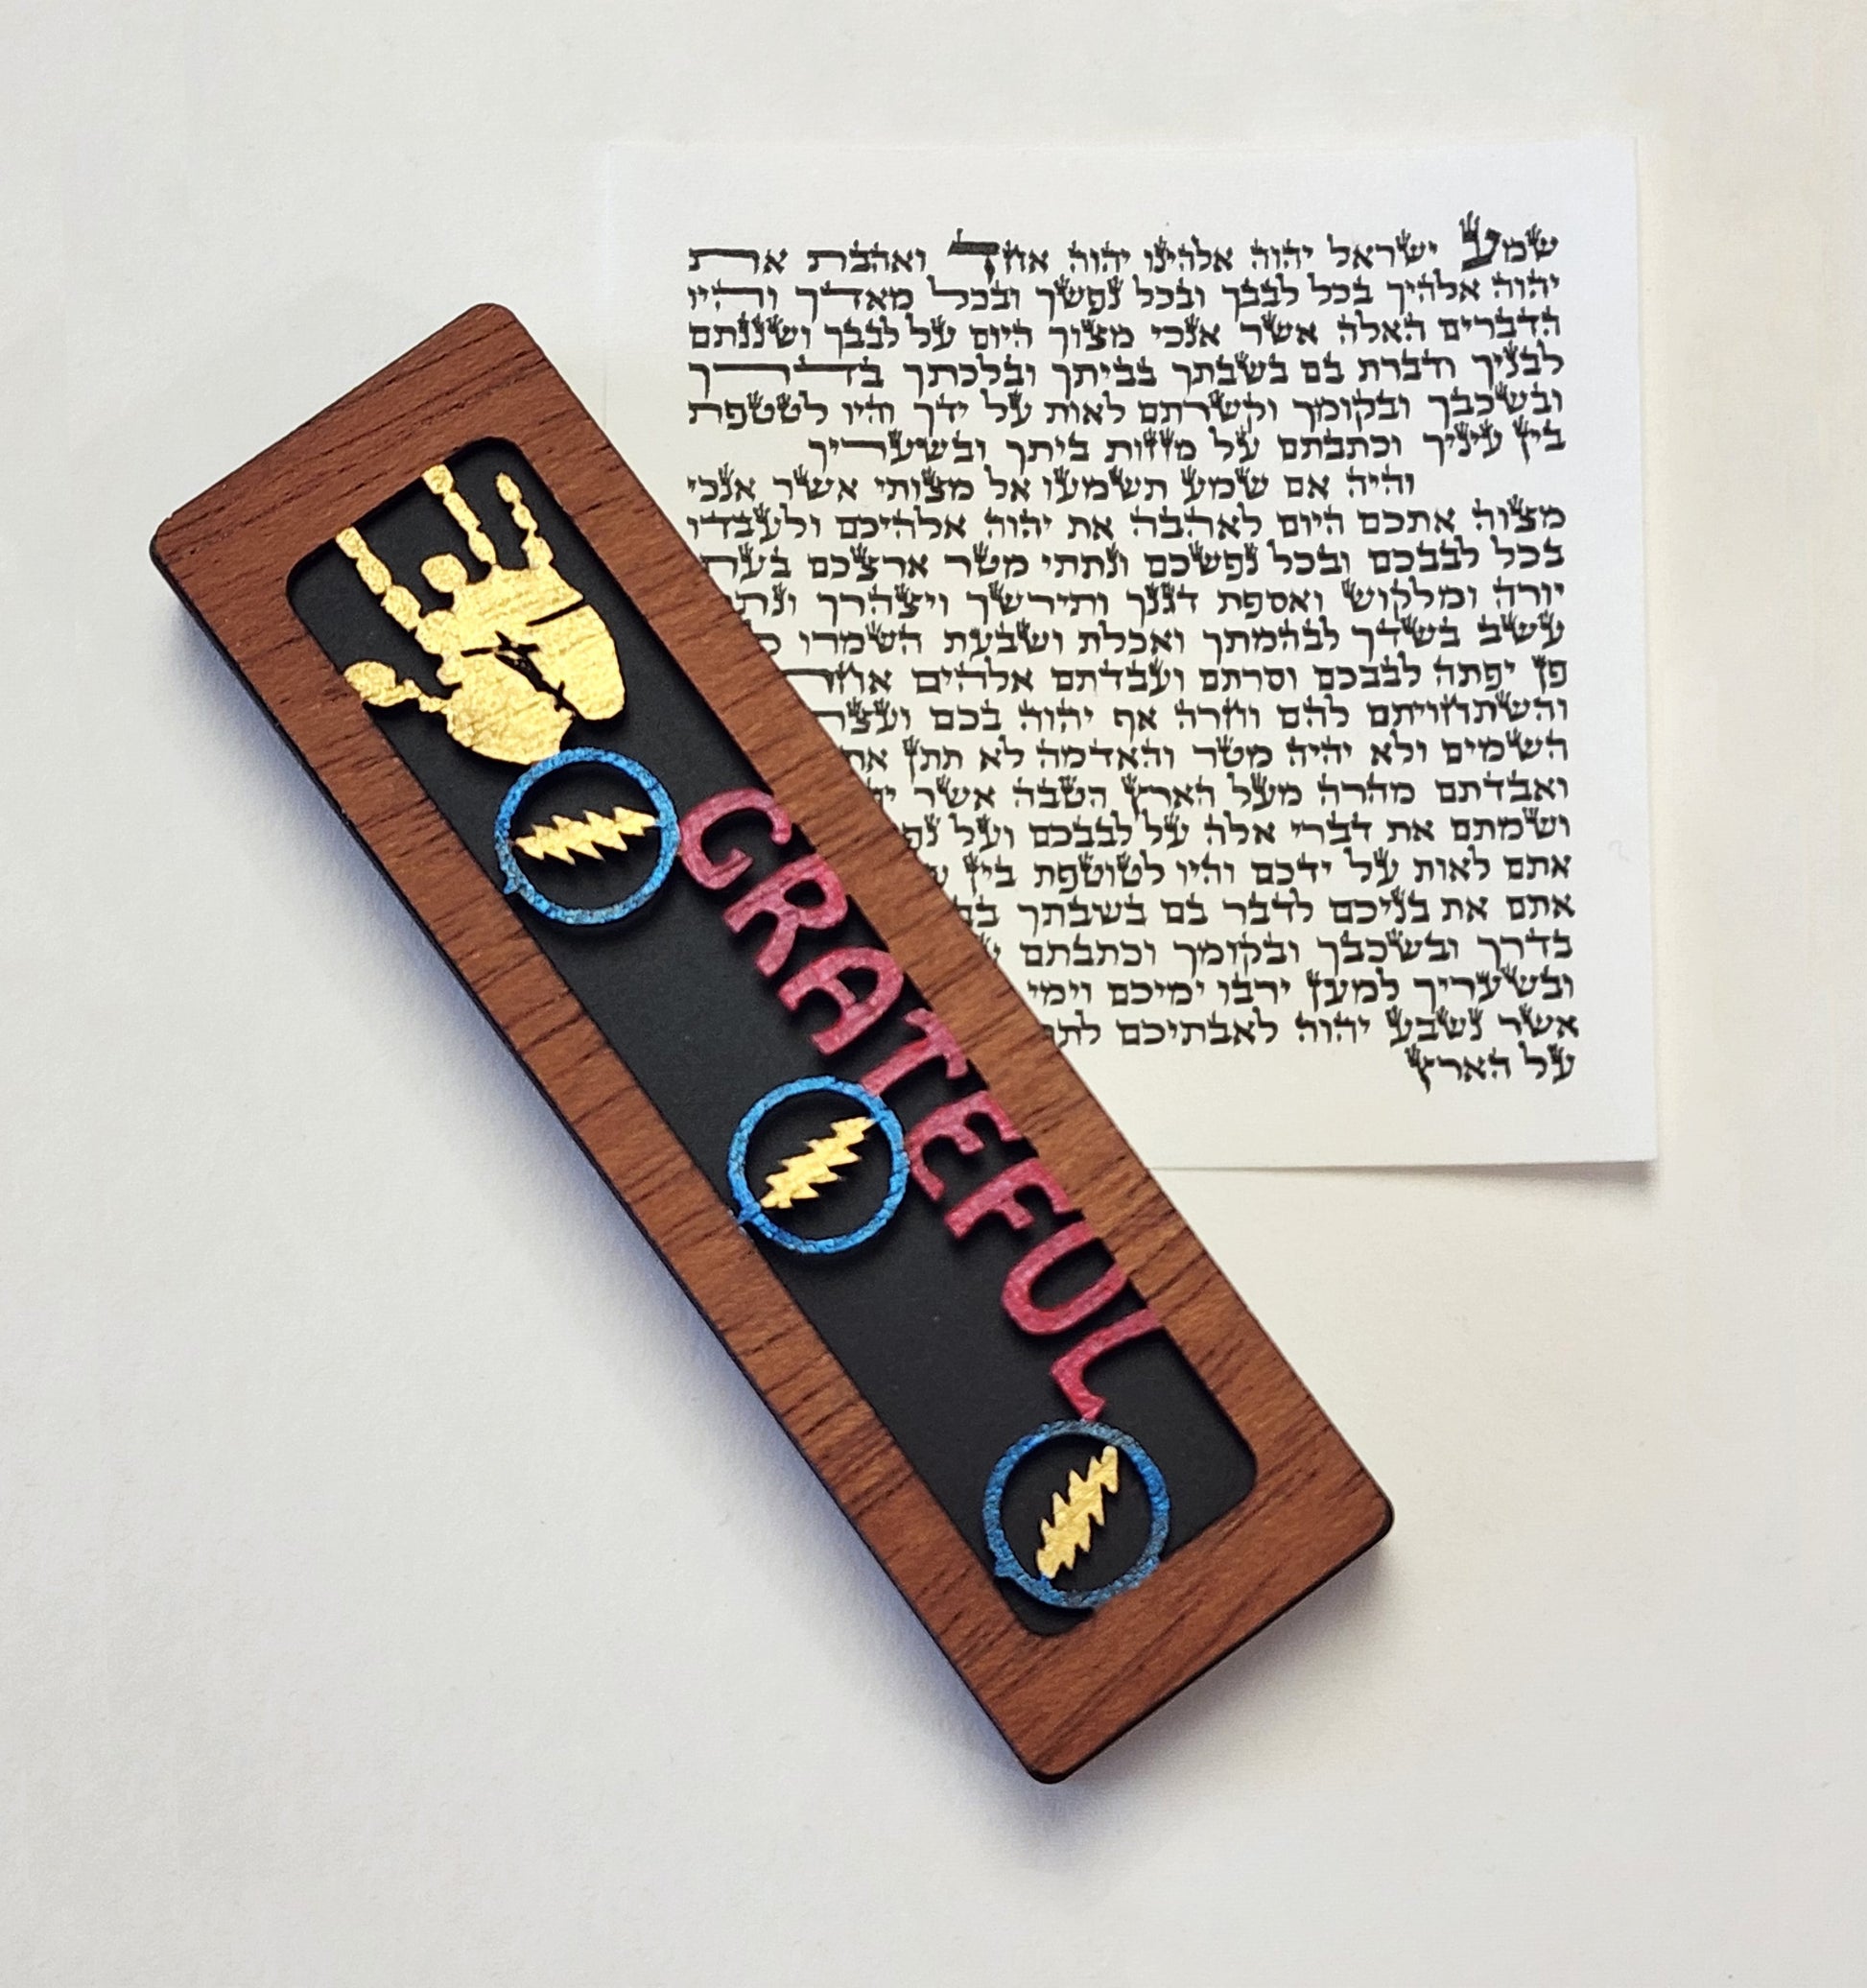 שמע ישראל יהוה אלהינו יהוה אחד ואהבת את
יהוה אלהיך בכל לבבך ובכל נפשך ובכל מאדך והיו
הדברים האלה אשר אנכי מצוך היום על לבבך ושננתם
לבניך ודברת בם בשבתך בביתך ובלכתך בדרך
ובשכבך ובקומך וקשרתם לאות על ידך והיו לטטפת
בין עיניך וכתבתם על מזזות ביתך ובשעריך
והיה אם שמע תשמעו אל מצותי אשר אנכי
מצוה אתכם היום לאהבה את יהוה אלהיכם ולעבדו
בכל לבבכם ובכל נפשכם ונתתי מטר ארצכם
יורה ומלקוש ואספת דגנך ותירשך ויצהרך
עשב בשדך לבהמתך ואכלת ושבעת השמרו
פן יפתה לבבכם וסרתם ועבדתם אלהים
והשתחויתם להם וחרה אף יהוה בכם ועצר
השמים ולא יהיה מטר והאדמה לא תתן את
ואבדתם מהרה מעל הארץ הטבה אשר
ושמתם את דברי אלה על לבבכם ועל
אתם לאות על ידכם והיו לטוטפת בין
אתם את בניכם לדבר בם בשבתך
בדרך ובשכבך ובקומך וכתבתם
ובשעריך למען ירבו ימיכם וימי
אשר נשבע יהוה לאבתיכם
על הארץ
GRATEFUL